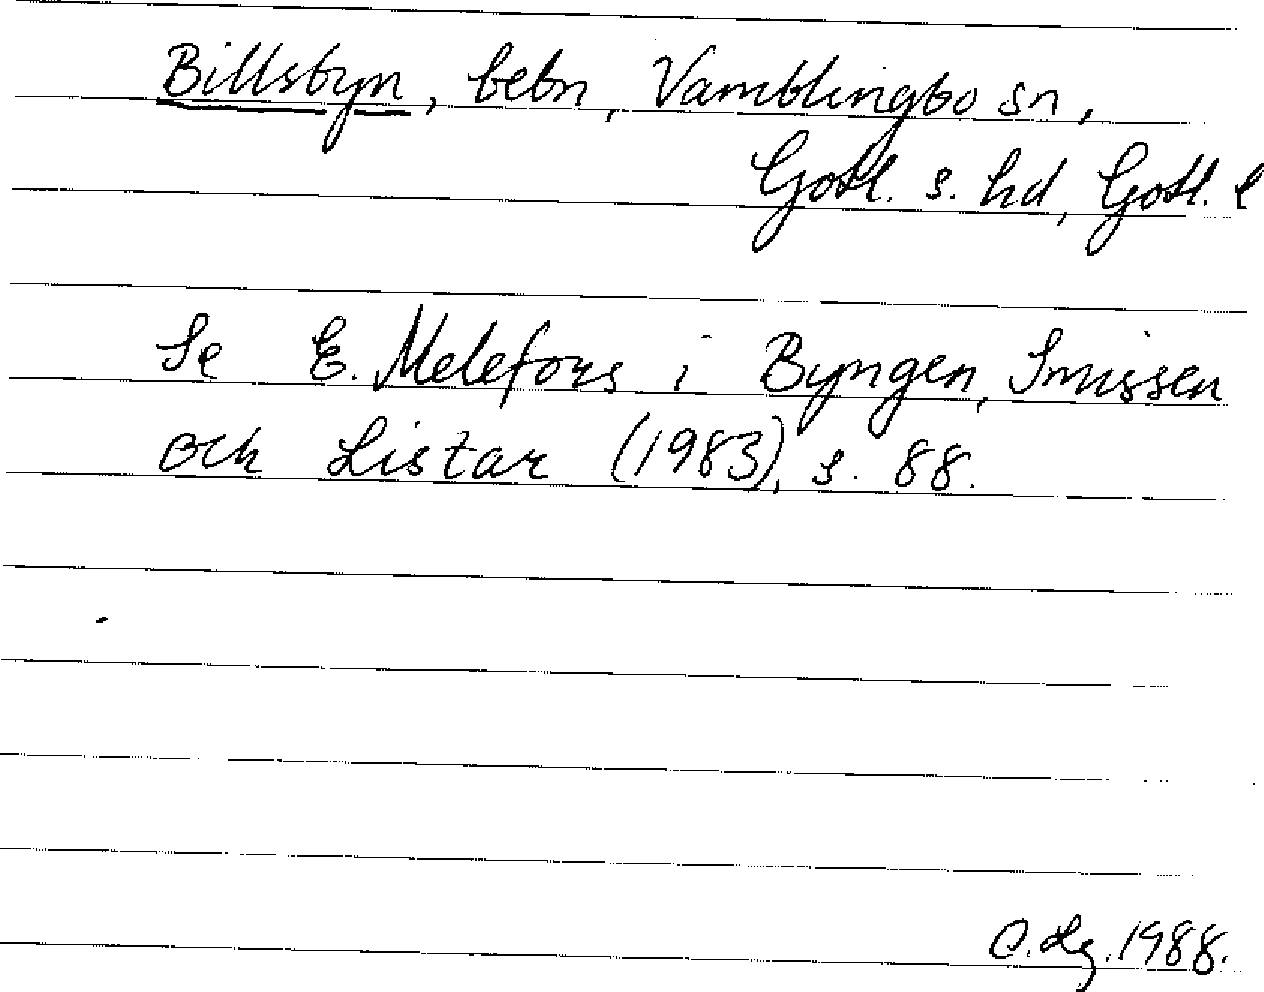 Billsbyn, bebn, Vamblingbo sn,
Gotl. s. hd, Gotl. l
Se E. Melefors i Byngen, Smissen
och Listar (1983), s. 88.
1988.